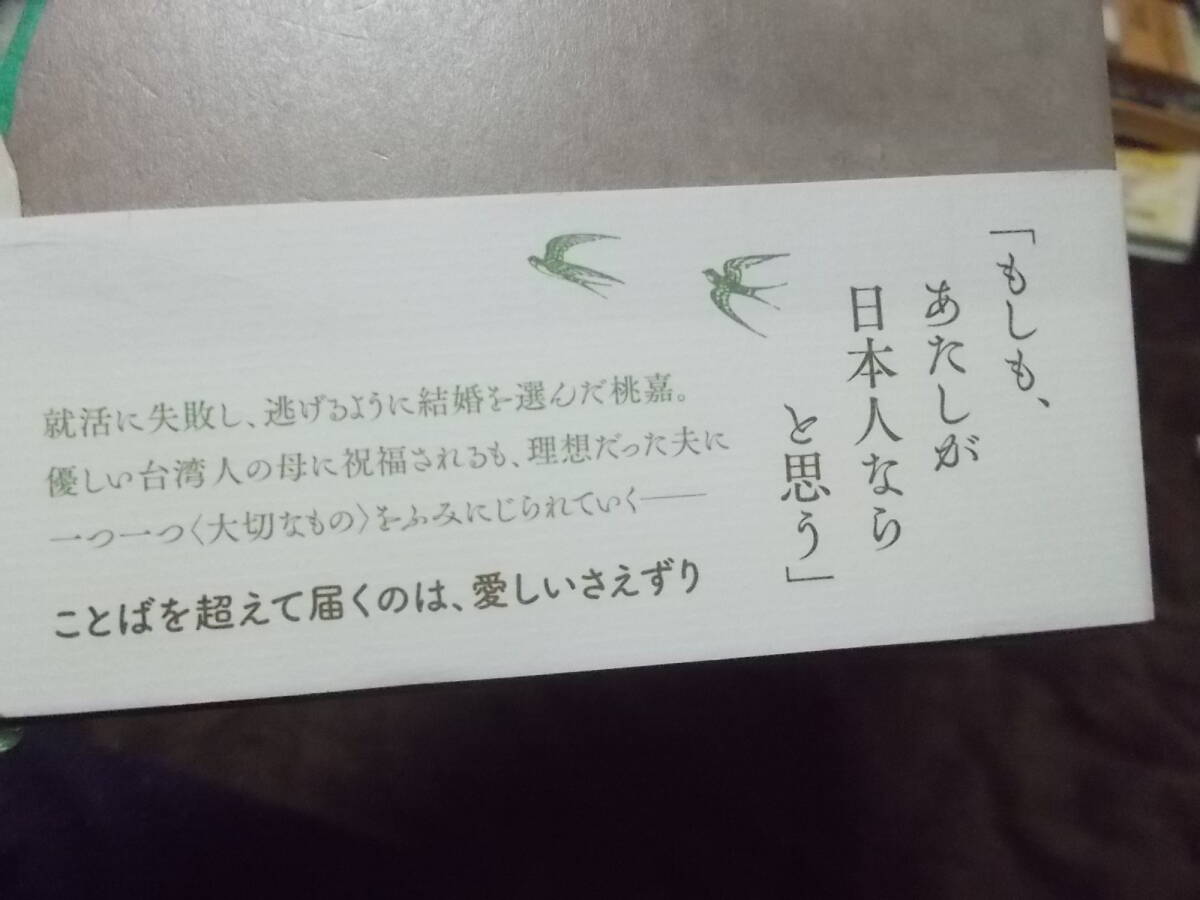 「もしも、
あたしが
日本人なら
と思う」
就活に失敗し、逃げるように結婚を選んだ桃嘉。
優しい台湾人の母に祝福されるも、理想だった夫に
一つ一つ〈大切なもの〉をふみにじられていく――
ことばを超えて届くのは、愛しいさえずり